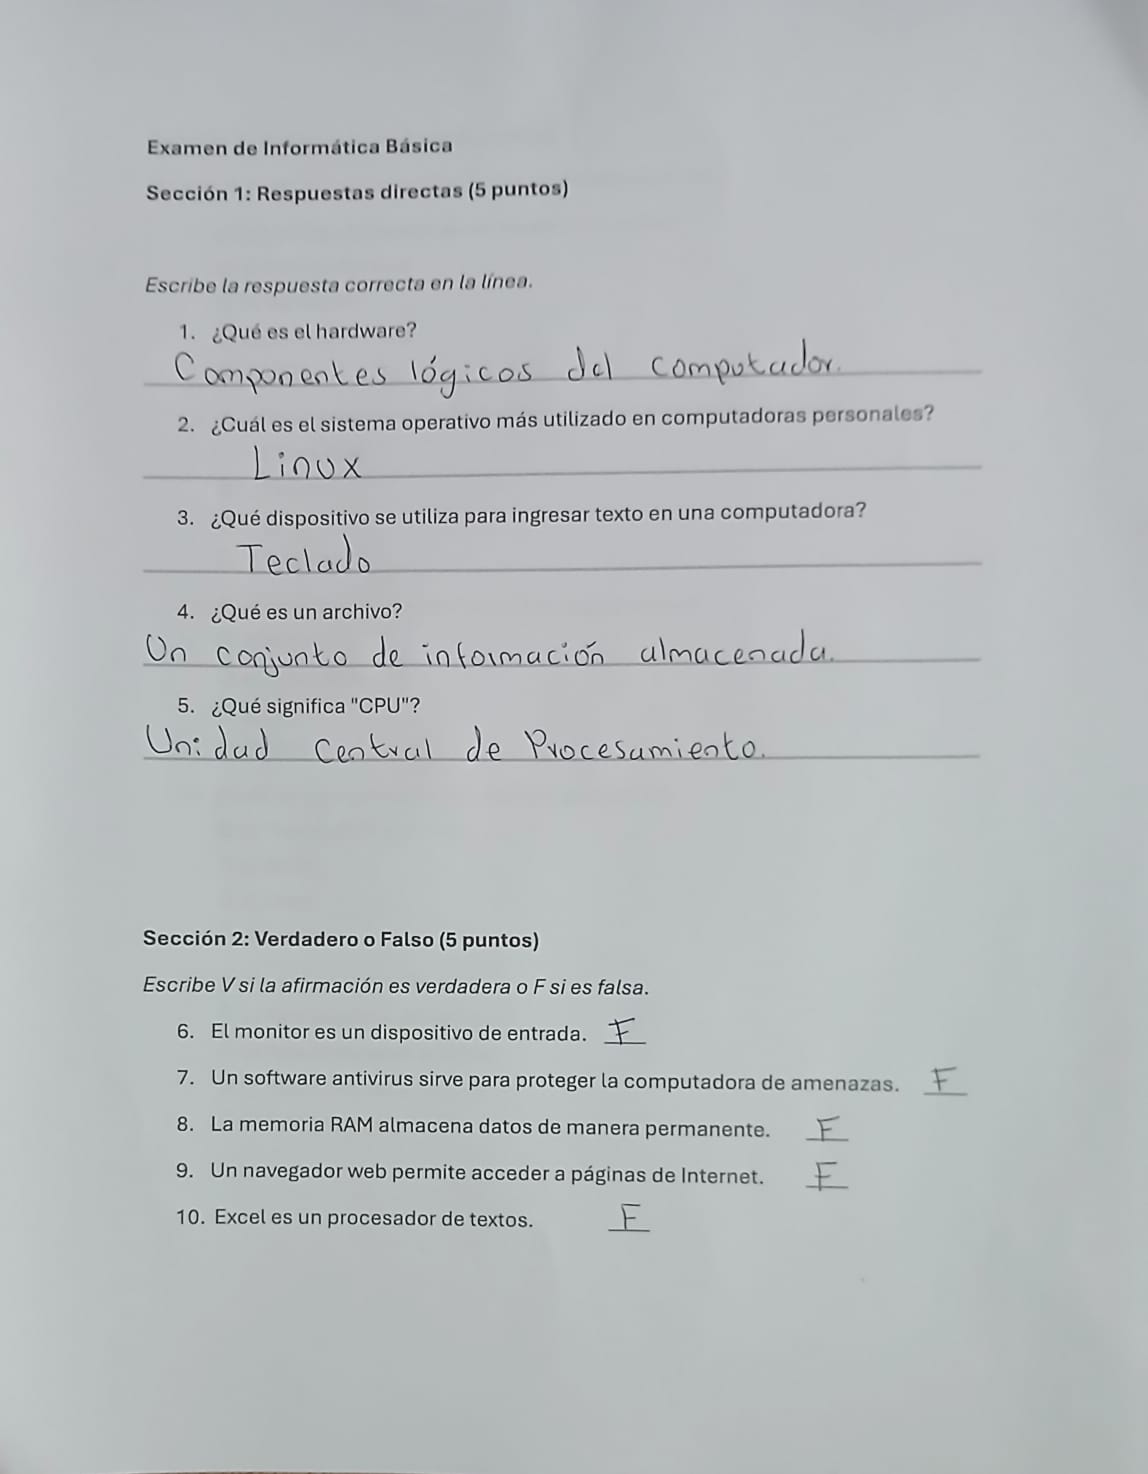 Examen de Informática Básica
Sección 1: Respuestas directas (5 puntos)
Escribe la respuesta correcta en la línea.
1. ¿Qué es el hardware?
Componentes lógicos del computador.
2. ¿Cuál es el sistema operativo más utilizado en computadoras personales?
Linux
3. ¿Qué dispositivo se utiliza para ingresar texto en una computadora?
Teclado
4. ¿Qué es un archivo?
Un conjunto de información almacenada.
5. ¿Qué significa "CPU"?
Unidad Central de Procesamiento.
Sección 2: Verdadero o Falso (5 puntos)
Escribe V si la afirmación es verdadera o F si es falsa.
6. El monitor es un dispositivo de entrada. F
7. Un software antivirus sirve para proteger la computadora de amenazas. F
8. La memoria RAM almacena datos de manera permanente. F
9. Un navegador web permite acceder a páginas de Internet. F
10. Excel es un procesador de textos. F